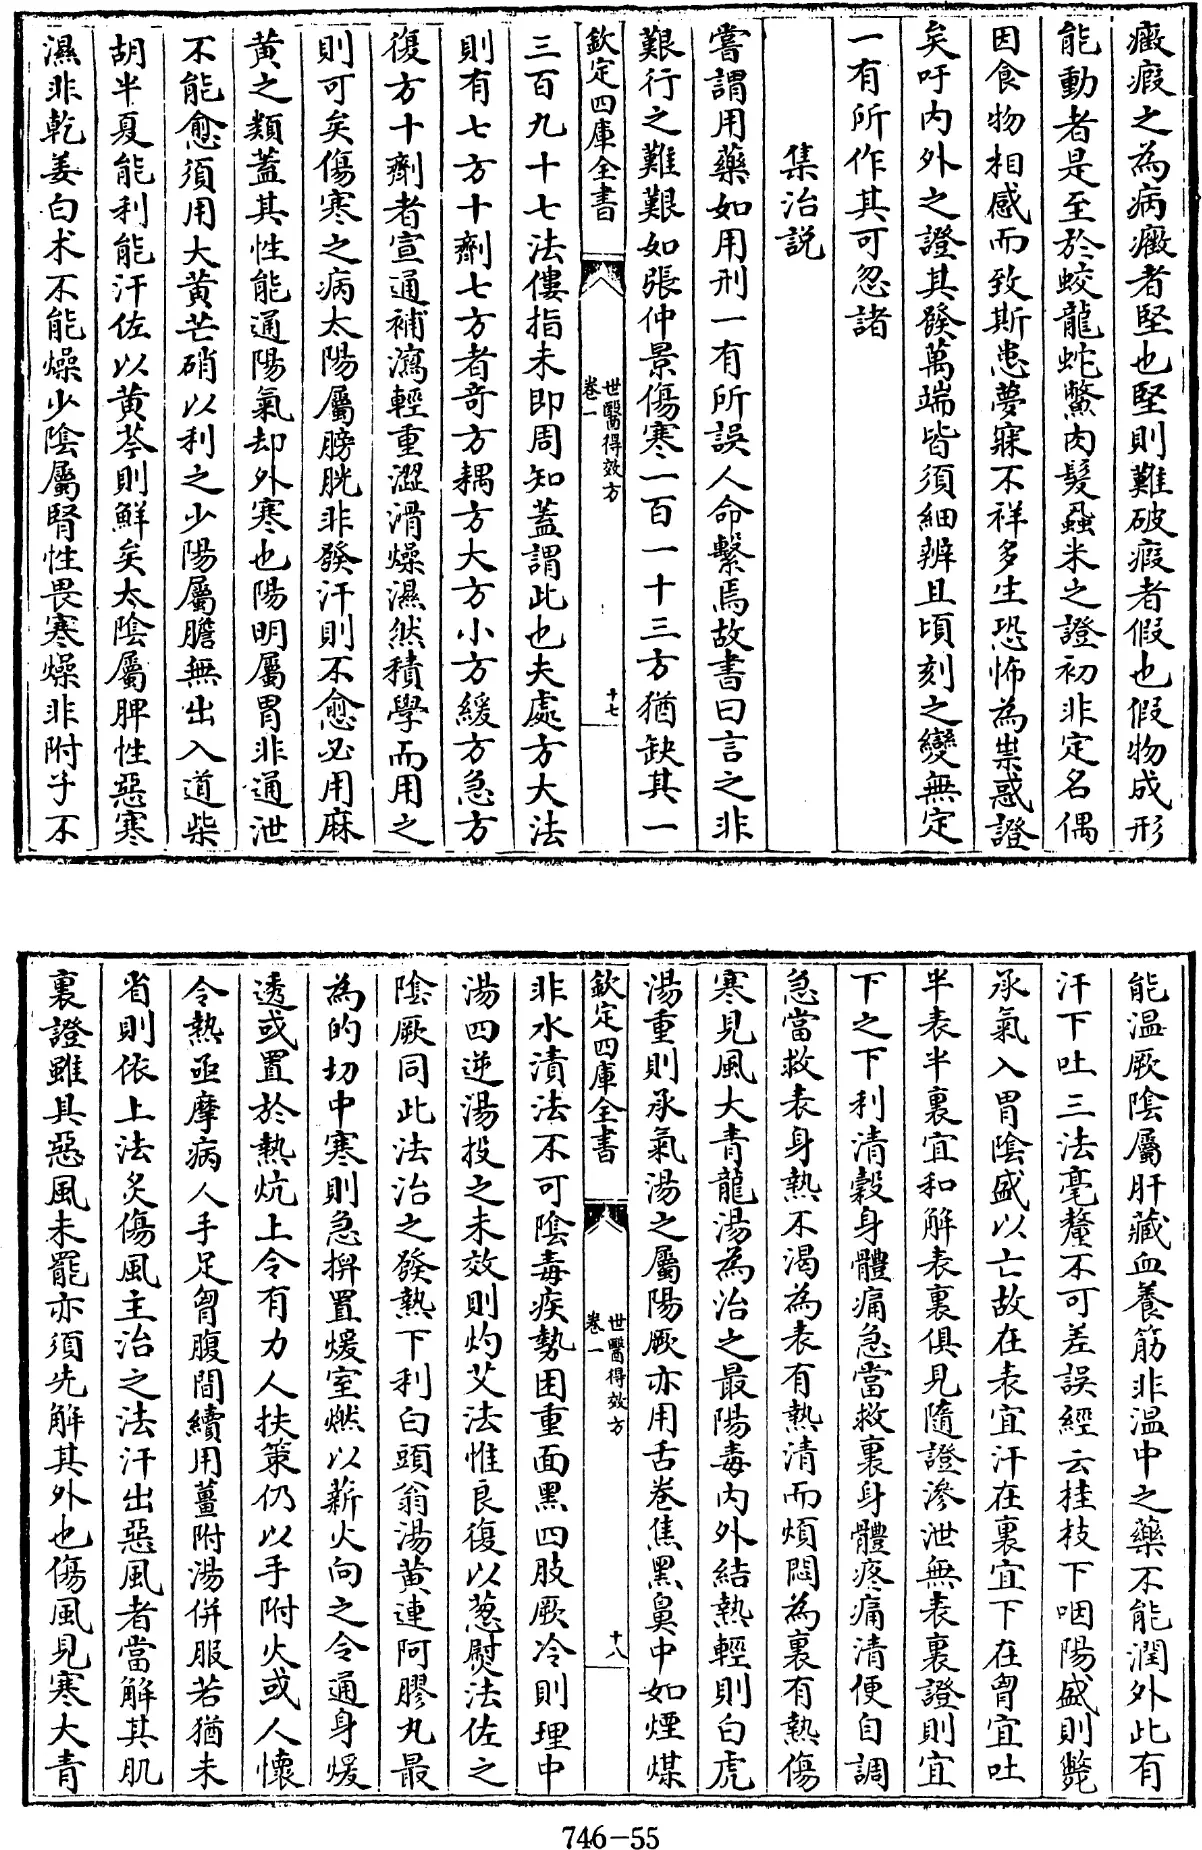 癥瘕之為病癥者堅也堅則難破瘕者假也假物成形
能動者是至於蛟龍蛇鱉肉髮蝨米之證初非定名偶
因食物相感而致斯患夢寐不祥多生恐怖為祟惑證
矣吁内外之證其發萬端皆須細辨且頃刻之變無定
一有所作其可忽諸
集治說
嘗謂用藥如用刑一有所誤人命繫焉故書曰言之非
艱行之難艱如張仲景傷寒一百一十三方猶缺其一
欽定四庫全書
世醫得效方
卷一
十七
三百九十七法僂指未即周知蓋謂此也夫處方大法
則有七方十劑七方者奇方耦方大方小方緩方急方
復方十劑者宣通補瀉輕重澀滑燥濕然積學而用之
則可矣傷寒之病太陽屬膀胱非發汗則不愈必用麻
黄之類蓋其性能通陽氣却外寒也陽明屬胃非通泄
不能愈須用大黄芒硝以利之少陽屬膽無出入道柴
胡半夏能利能汗佐以黄芩則鮮矣太陰屬脾性惡寒
濕非乾姜白术不能燥少陰屬腎性畏寒燥非附子不
能温厥陰屬肝藏血養筋非温中之藥不能潤外此有
汗下吐三法毫釐不可差誤經云桂枝下咽陽盛則斃
承氣入胃陰盛以亡故在表宜汗在裏宜下在胷宜吐
半表半裏宜和解表裏俱見隨證滲泄無表裏證則宜
下之下利清穀身體痛急當救裏身體疼痛清便自調
急當救表身熱不渴為表有熱清而煩悶為裏有熱傷
寒見風大青龍湯為治之最陽毒内外結熱輕則白虎
湯重則承氣湯之屬陽厥亦用舌卷焦黑鼻中如煙煤
欽定四庫全書
世醫得效方
卷一
十八
非水漬法不可陰毒疾勢困重面黑四肢厥冷則理中
湯四逆湯投之未效則灼艾法惟良復以葱熨法佐之
陰厥同此法治之發熱下利白頭翁湯黄連阿膠丸最
為的切中寒則急擀置煖室燃以薪火向之令通身煖
透或置於熱炕上令有力人扶策仍以手附火或人懷
令熱亟摩病人手足胷腹間續用薑附湯併服若猶未
省則依上法灸傷風主治之法汗出惡風者當解其肌
裏證雖具惡風未罷亦須先解其外也傷風見寒大青
746-55